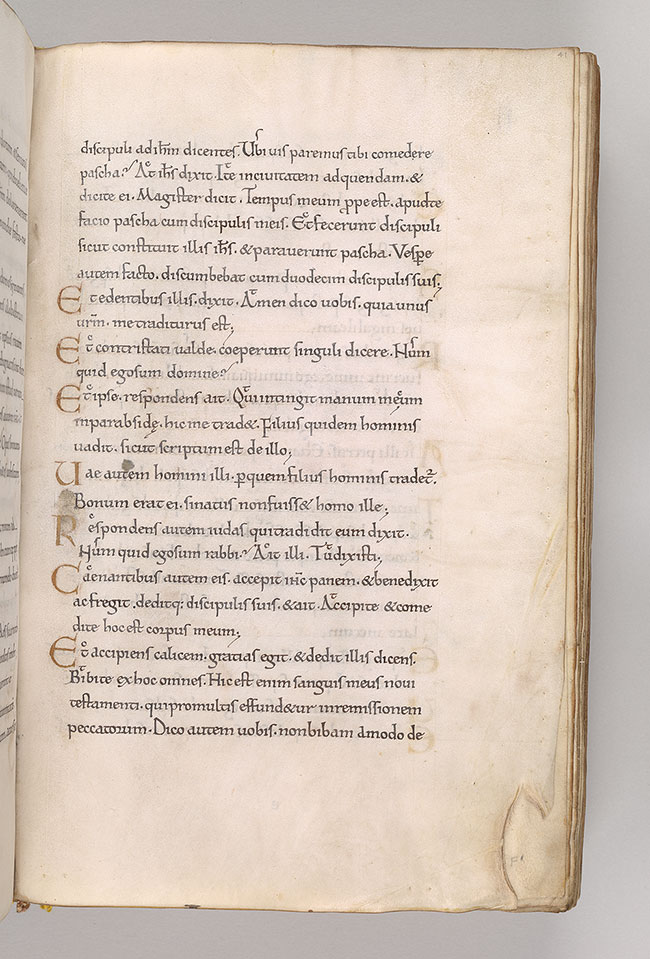 discipuli ad ihm dicentes. Ubi vis paremus tibi comedere
pascha? At ihs dixit. Ite in civitatem ad quendam. &
dicite ei. Magister dicit. Tempus meum ꝓpe est. apud te
facio pascha cum discipulis meis. Et fecerunt discipuli
sicut constituit illis ihs. & paraverunt pascha. Vespe
autem facto. discumbebat cum duodecim discipulis suis;
Et edentibus illis. dixit. Amen dico vobis. quia unus
urm. me traditurus est;
Et contristati valde. coeperunt singuli dicere. Num
quid ego sum domine?
Et ipse. respondens ait. Qui intingit manum mecum
in parabside. hic me trad&. Filius quidem hominis
vadit. sicut scriptum est de illo;
Uae autem homini illi. ꝑ quem filius hominis tradet.
Bonum erat ei. si natus non fuiss& homo ille;
Respondens autem iudas qui tradidit eum dixit.
Num quid ego sum rabbi? Ait illi. Tu dixisti;
Caenantibus autem eis. accepit ihc panem. & benedixit
ac fregit. deditq; discipulis suis. & ait. Accipite & come
dite hoc est corpus meum;
Et accipiens calicem. gratias egit. & dedit illis dicens.
Bibite ex hoc omnes. Hic est enim sanguis meus novi
testamenti. qui pro multis effund&ur in remissionem
peccatorum. Dico autem vobis. non bibam amodo de